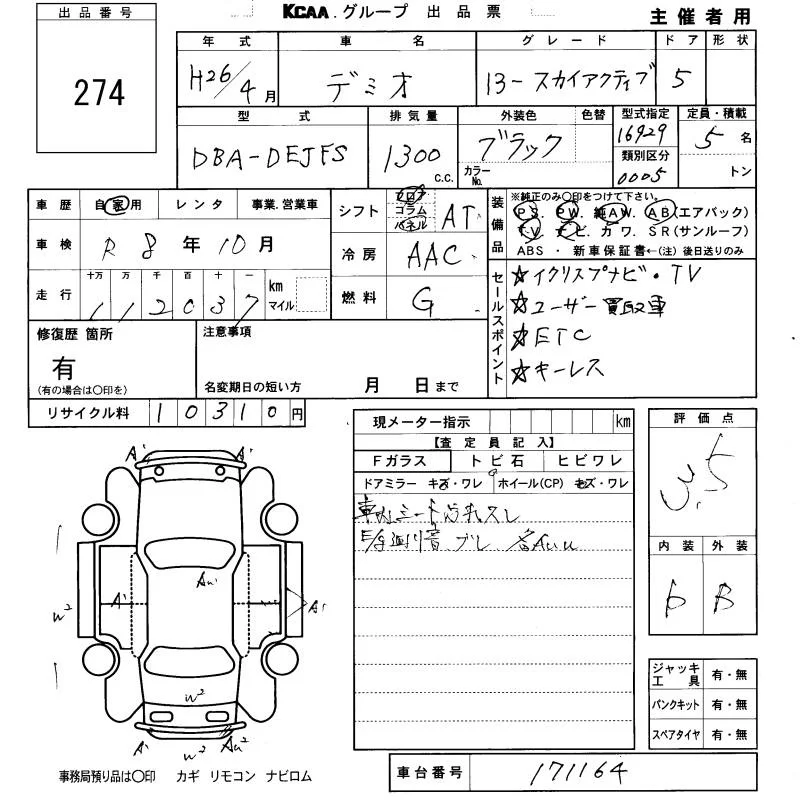 出品番号
274
KCAA.グループ 出品票
主催者用
年式 車名 グレード ドア 形状
H26/4月 デミオ 13-スカイアクティブ 5
型式 排気量 外装色 色替 型式指定 定員・積載
DBA-DEJFS 1300 C.C. ブラック カラーNo. 16929 5名
類別区分
0005 トン
車歴 自家用 レンタ 事業.営業車
車検 R8年10月
走行 十万 万 千 百 十 一 km マイル
112037
シフト フロア コラム パネル AT
冷房 AAC
燃料 G
装備品
※純正のみ○印をつけて下さい。
PS. PW. 純AW. AB(エアバック)
TV. ナビ. カワ. SR(サンルーフ)
ABS ・ 新車保証書←(注) 後日送りのみ
セールスポイント
☆イクリプスナビ・TV
☆ユーザー買取車
☆ETC
☆キーレス
修復歴 箇所
有
(有の場合は○印を)
注意事項
名変期日の短い方 月 日まで
リサイクル料 10310円
現メーター指示 km
【査定員記入】
Fガラス トビ石 ヒビワレ
ドアミラー キズ・ワレ ホイール(CP) キズ・ワレ
車内シート汚れスレ
各AUU
評価点
3.5
内装 外装
B
ジャッキ 工具 有・無
パンクキット 有・無
スペアタイヤ 有・無
A1 A1
AU1
A1 A1
W2
W2
A1 W2 AU2
事務局預り品は○印 カギ リモコン ナビロム
車台番号 171164